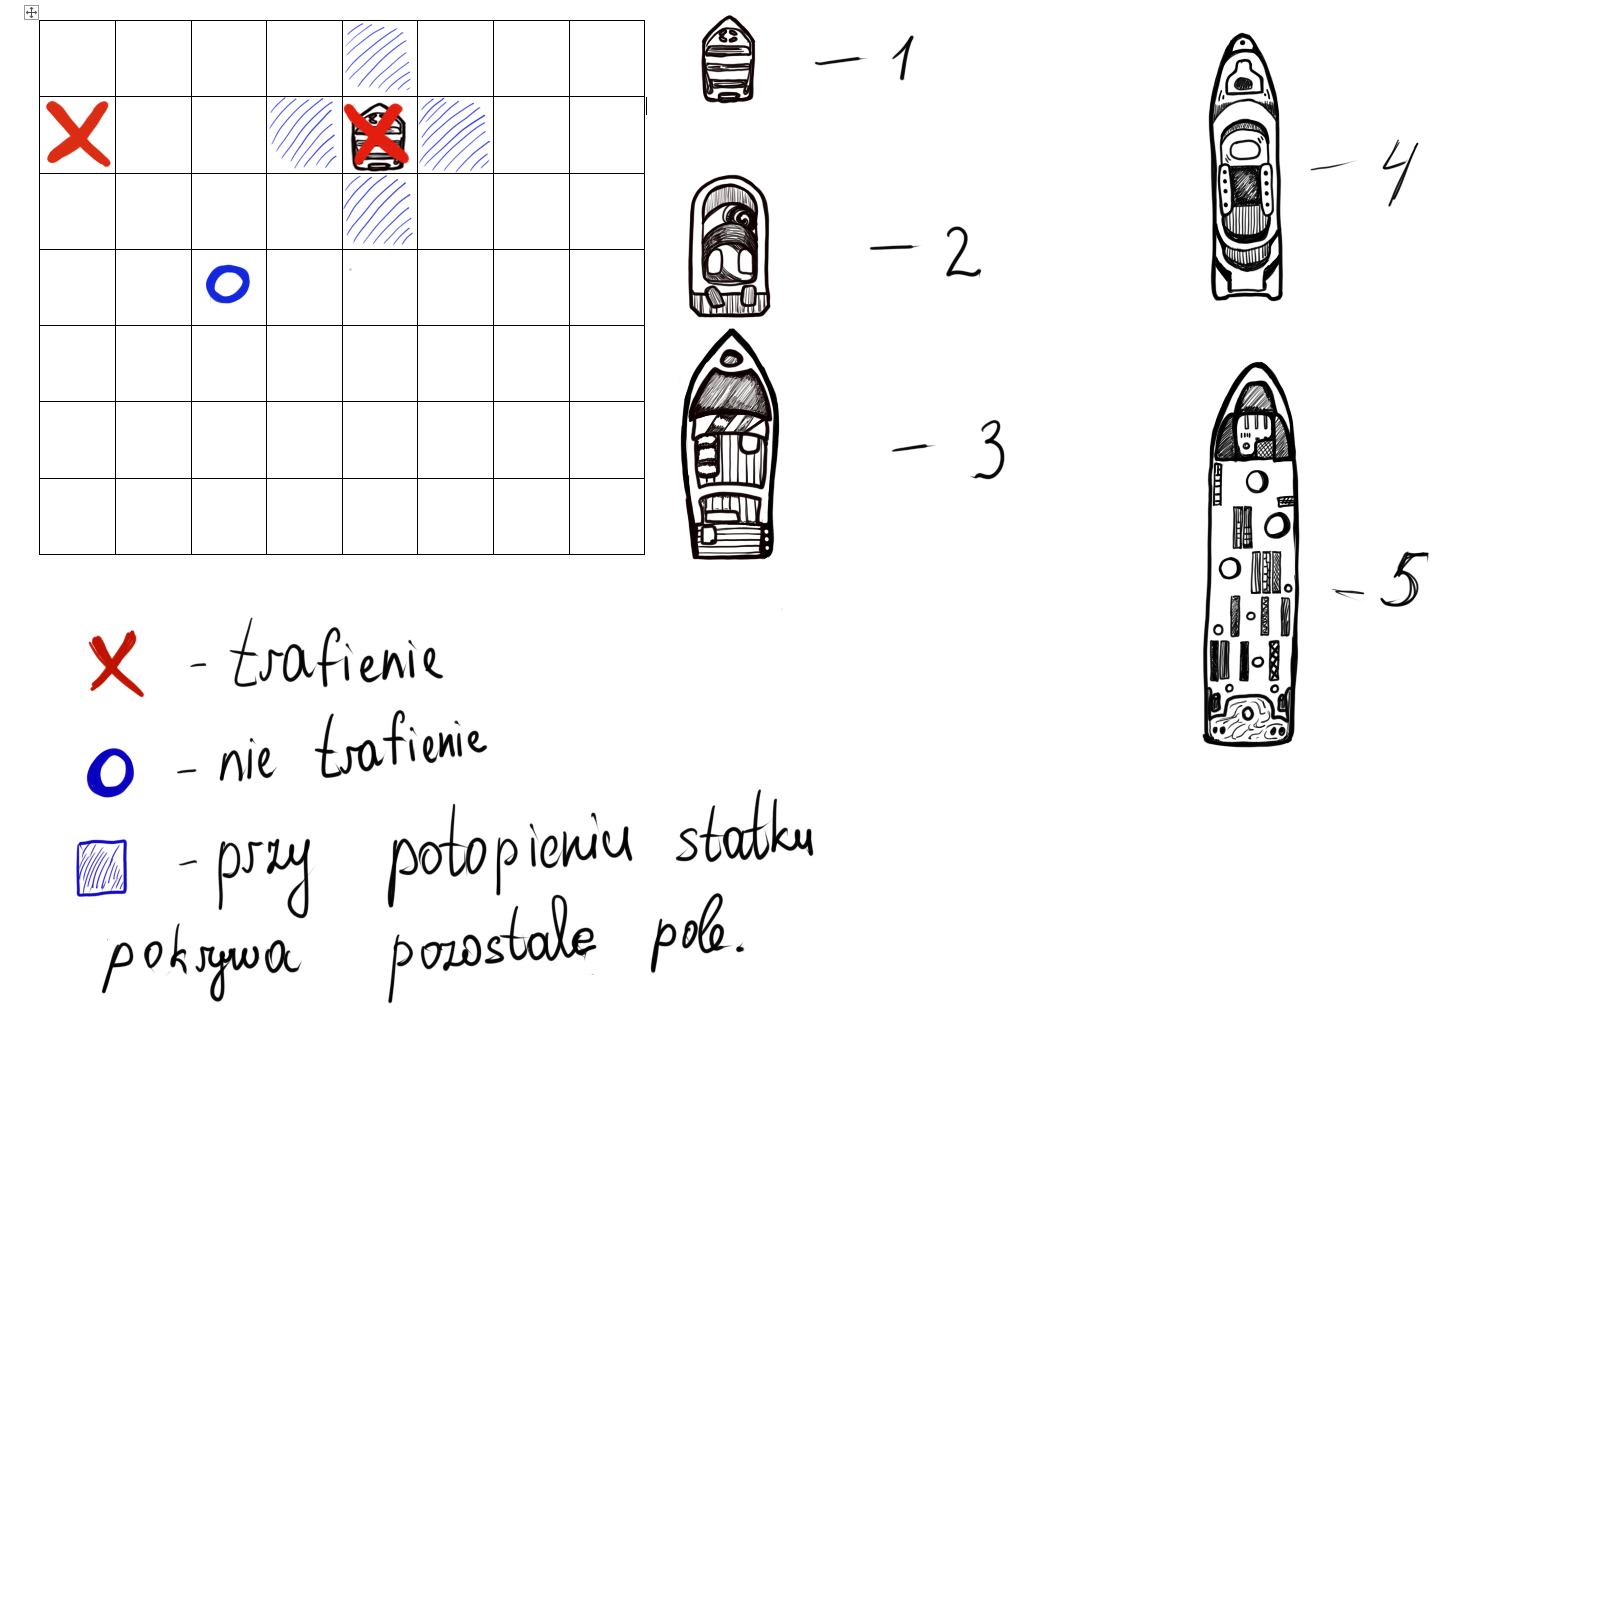 - 1
- 2
- 3
- 4
- 5
- trafienie
- nie trafienie
- przy potopieniu statku
pokrywa pozostałe pole.